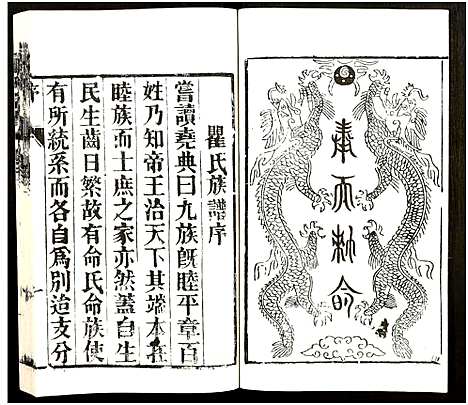 奉天敕命
瞿氏族譜序
嘗讀堯典曰九族既睦平章百
姓乃知帝王治天下其端本在
睦族而士庶之家亦然蓋自生
民生齒日繁故有命氏命族使
有所統系而各自爲別迨支分
序